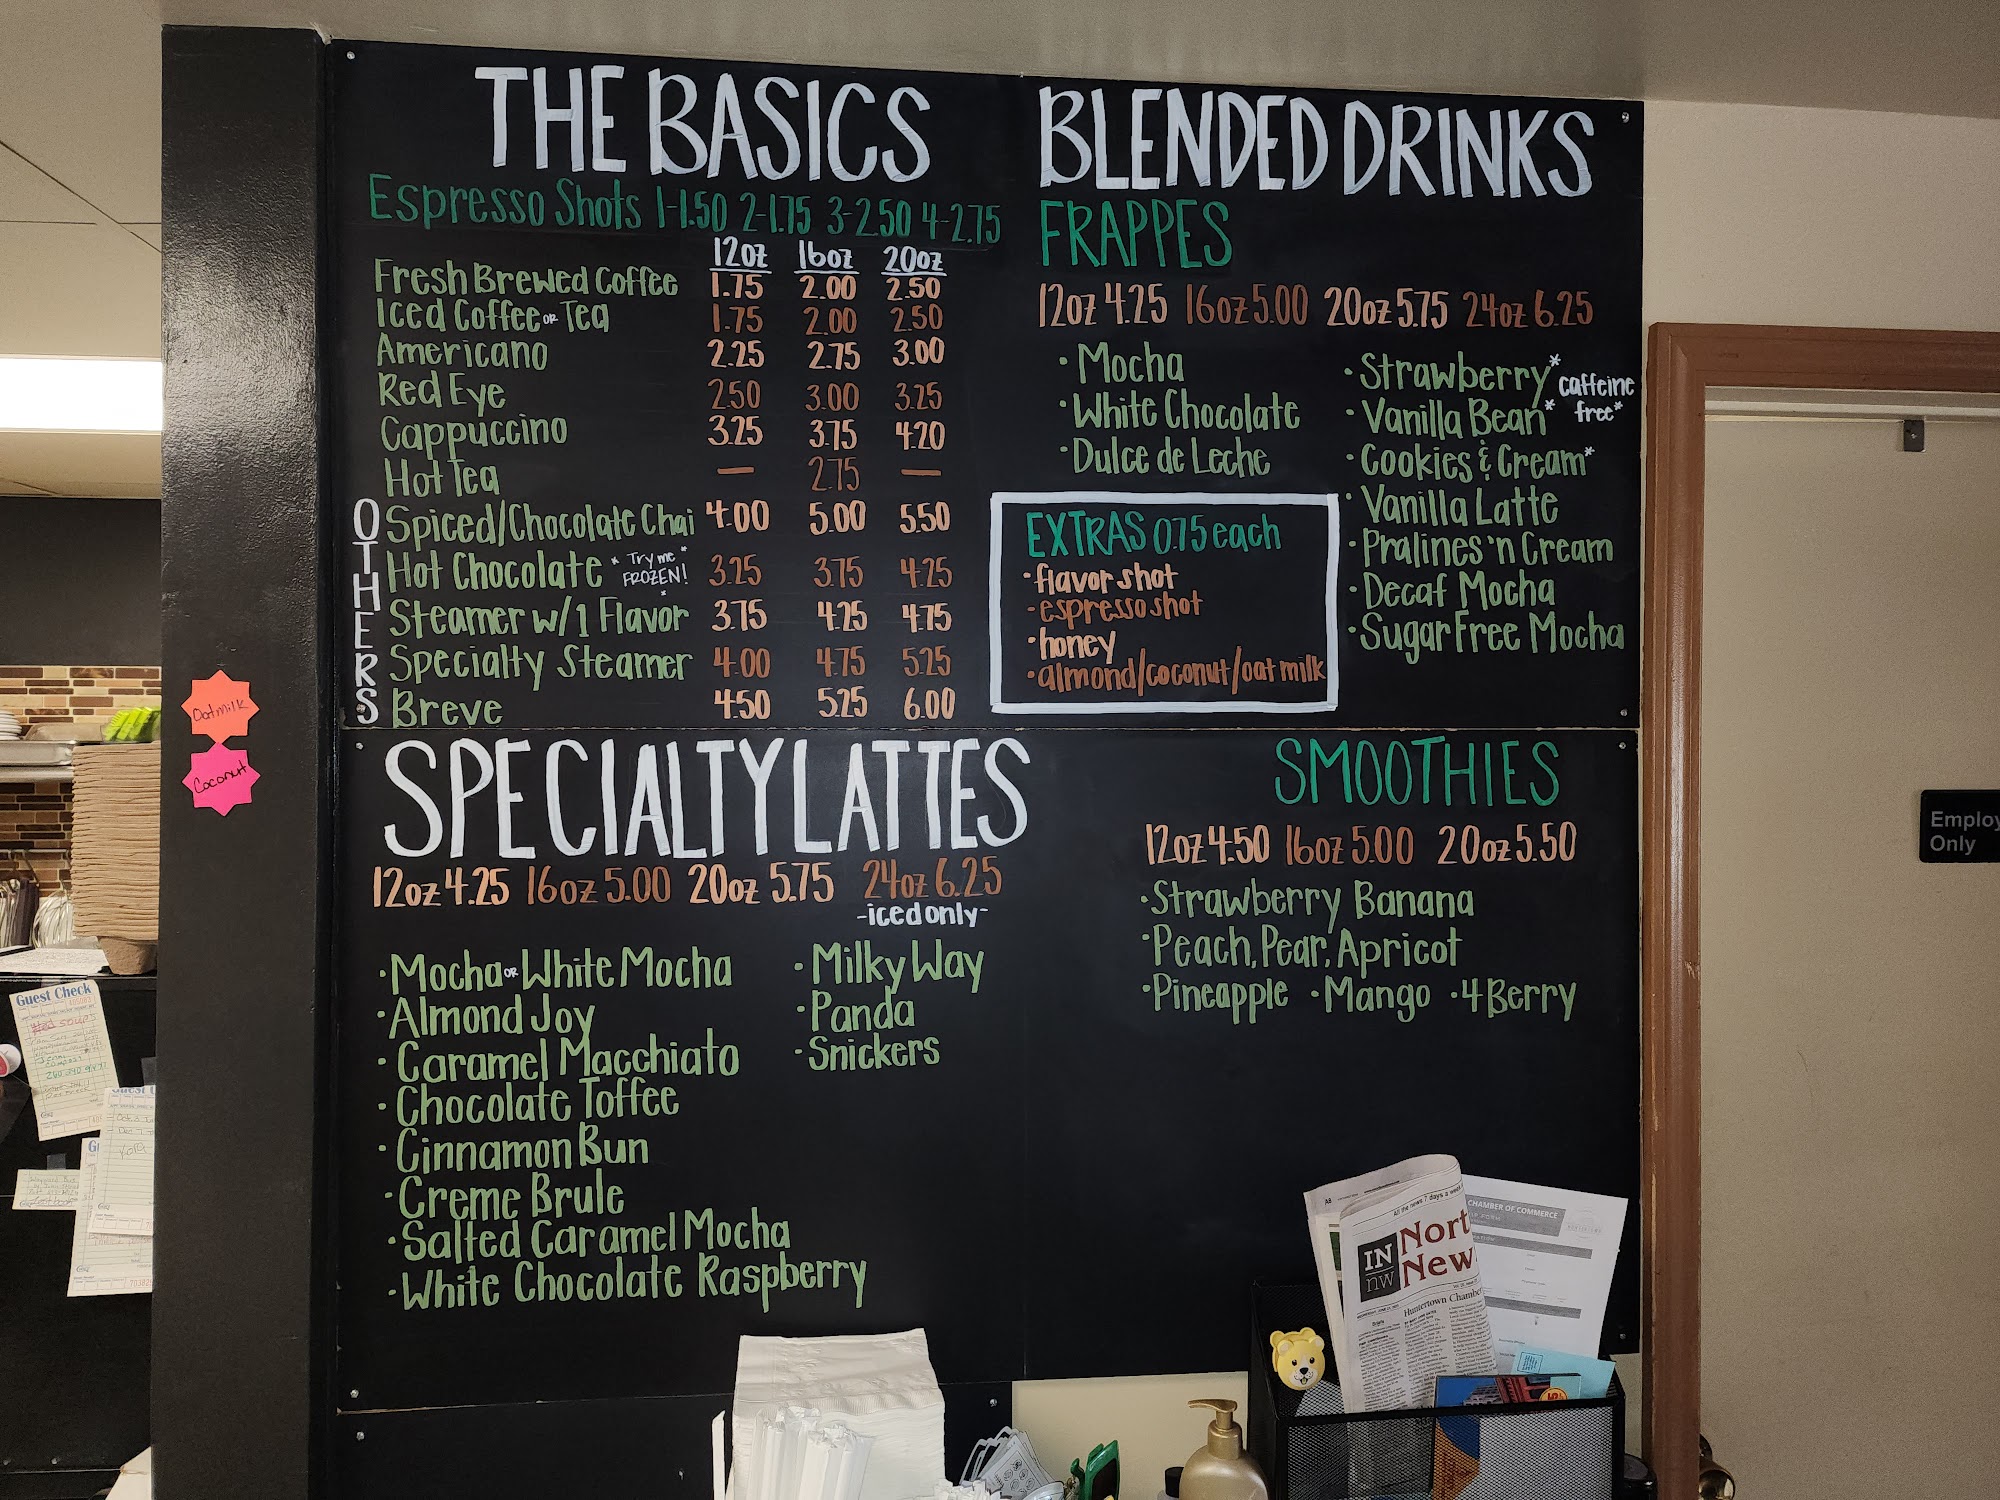 THE BASICS
Espresso Shots 1-1.50 2-1.75 3-2.50 4-2.75
12oz 16oz 20oz
Fresh Brewed Coffee 1.75 2.00 2.50
Iced Coffee or Tea 1.75 2.00 2.50
Americano 2.25 2.75 3.00
Red Eye 2.50 3.00 3.25
Cappuccino 3.25 3.75 4.20
Hot Tea — 2.75 —
OTHERS
Spiced/Chocolate Chai 4.00 5.00 5.50
Hot Chocolate *Try me FROZEN!* 3.25 3.75 4.25
Steamer w/1 Flavor 3.75 4.25 4.75
Specialty Steamer 4.00 4.75 5.25
Breve 4.50 5.25 6.00
BLENDED DRINKS
FRAPPES
12oz 4.25 16oz 5.00 20oz 5.75 24oz 6.25
· Mocha
· White Chocolate
· Dulce de Leche
· Strawberry*
· Vanilla Bean*
*caffeine free*
· Cookies & Cream*
· Vanilla Latte
· Pralines 'n Cream
· Decaf Mocha
· Sugar Free Mocha
EXTRAS 0.75 each
· flavor shot
· espresso shot
· honey
· almond/coconut/oat milk
SPECIALTY LATTES
12oz 4.25 16oz 5.00 20oz 5.75 24oz 6.25
-iced only-
· Mocha or White Mocha
· Almond Joy
· Caramel Macchiato
· Chocolate Toffee
· Cinnamon Bun
· Creme Brule
· Salted Caramel Mocha
· White Chocolate Raspberry
· Milky Way
· Panda
· Snickers
SMOOTHIES
12oz 4.50 16oz 5.00 20oz 5.50
· Strawberry Banana
· Peach, Pear, Apricot
· Pineapple · Mango · 4 Berry
Oatmilk
Coconut
Guest Check
Employ
Only
CHAMBER OF COMMERCE
All the news 7 days a week
IN
nw
Nort
New
Huntertown Chamber